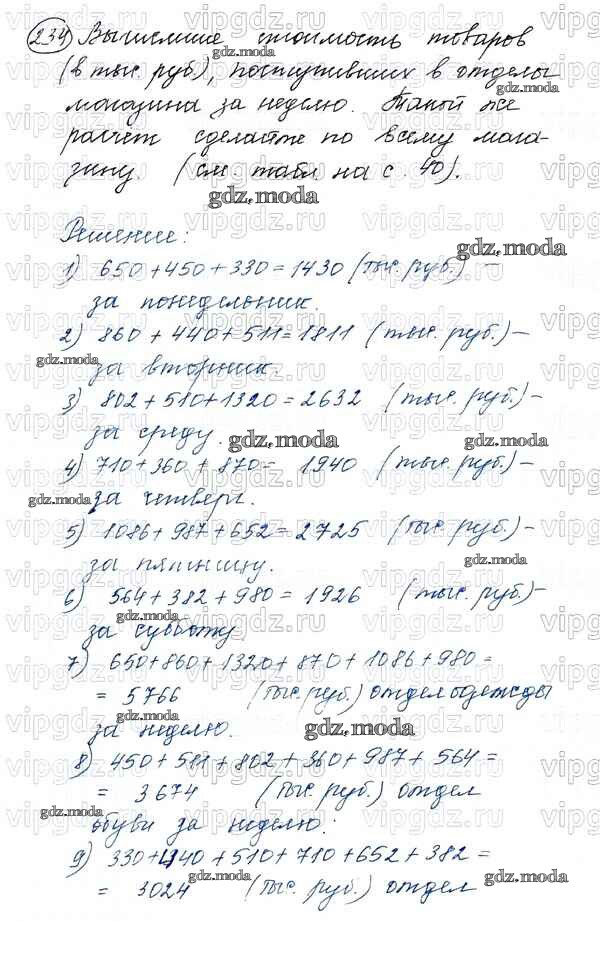 234 Вычислите стоимость товаров
(в тыс. руб.), поступивших в отделы
магазина за неделю. Такой же
расчет сделайте по всему мага-
зину. (см. табл на с. 40).
gdz.moda
Решение:
1) 650+450+330=1430 (тыс. руб.) –
за понедельник.
2) 860+440+511=1811 (тыс. руб.) –
за вторник.
3) 802+510+1320=2632 (тыс. руб.) –
за среду.
4) 710+360+870= 1940 (тыс. руб.) –
за четверг.
5) 1086+987+652=2725 (тыс. руб.) –
за пятницу.
6) 564+382+980=1926 (тыс. руб.) –
за субботу
7) 650+860+1320+870+1086+980=
= 5766 (тыс. руб.) отдел одежды
за неделю.
8) 450+511+802+360+987+564=
= 3674 (тыс. руб.) отдел
обуви за неделю.
9) 330+440+510+710+652+382=
= 3024 (тыс. руб.) отдел
vipgdz.ru